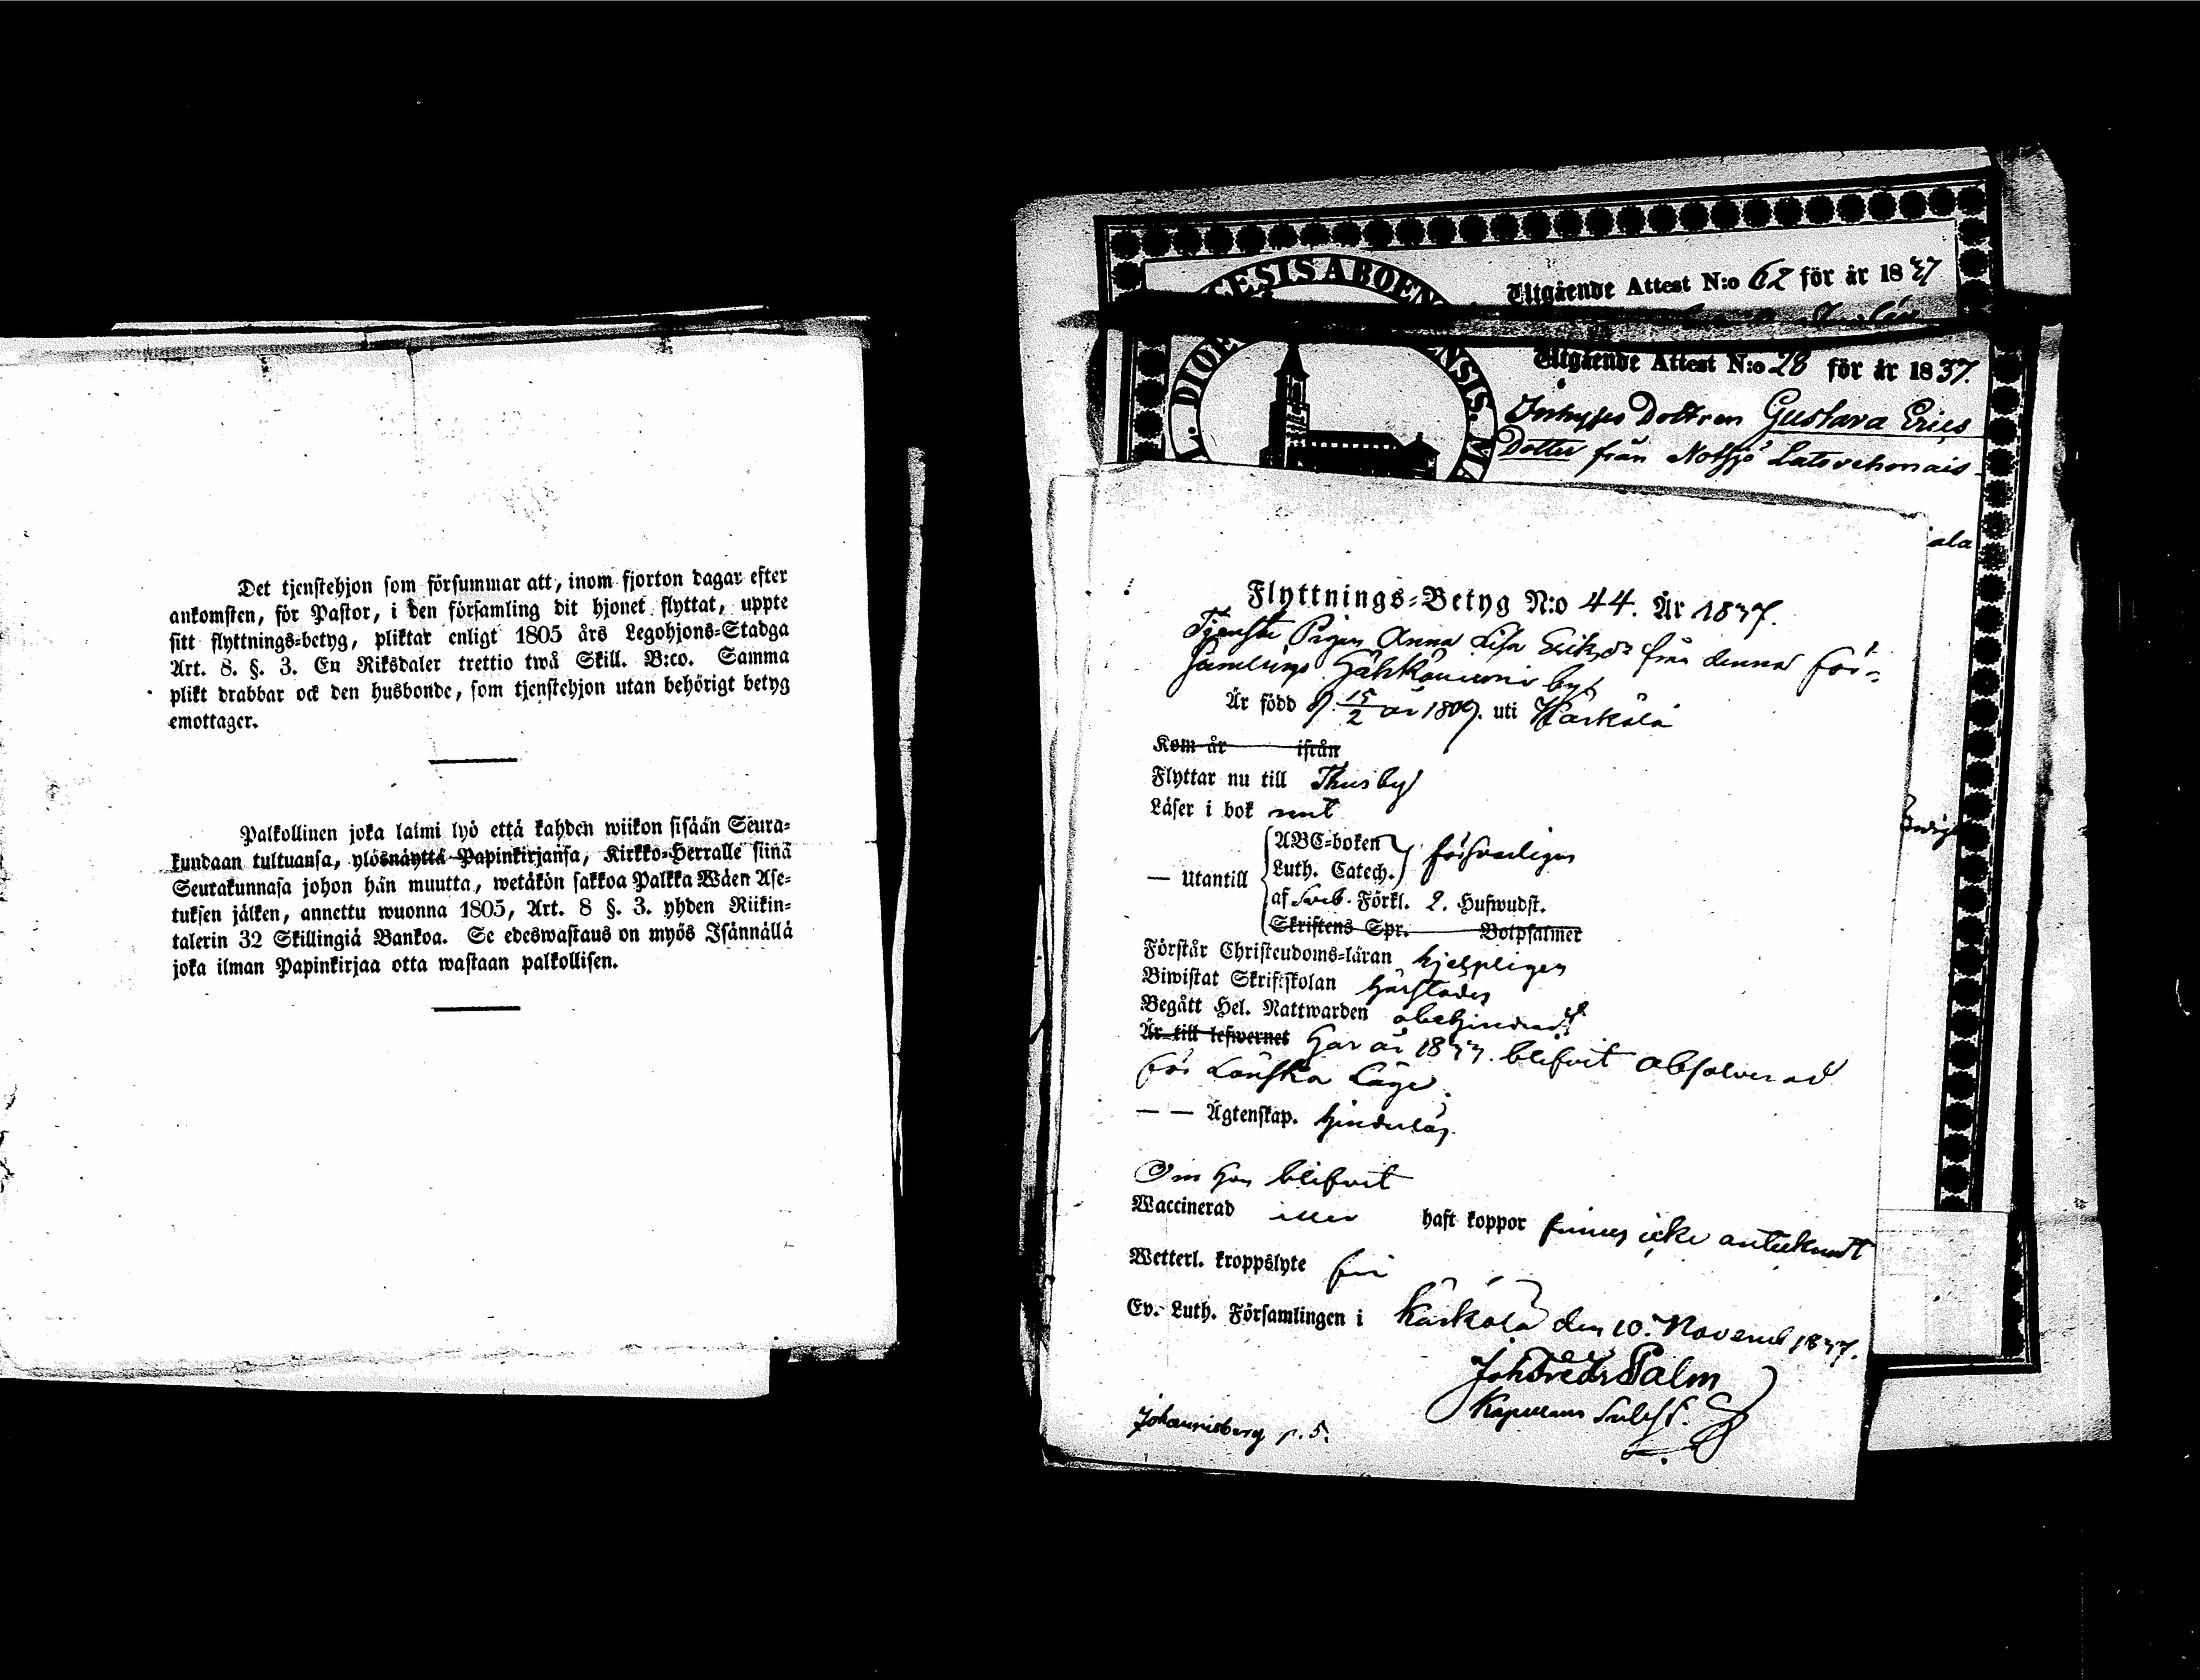 Det tjenstehjon som försummar att, inom fjorton dagar efter
ankomsten, för Pastor, i den församling dit hjonet flyttat, uppte
sitt flyttnings-betyg, pliktar enligt 1805 års Legohjons-Stadga
Art. 8. §. 3. En Riksdaler trettio twå Skill. B:co. Samma
plikt drabbar ock den husbonde, som tjenstehjon utan behörigt betyg
emottager.
Palkollinen joka laimi lyö että kahden wiikon sisään Seura-
kundaan tultuansa, ylösnäyttä Papinkirjansa, Kirkko-Herralle siinä
Seurakunnasa johon hän muutta, wetäkön sakkoa Palkka Wäen Ase-
tuksen jälken, annettu wuonna 1805, Art. 8 §. 3. yhden Riikin-
talerin 32 Skillingiä Bankoa. Se edeswastaus on myös Isännällä
joka ilman Papinkirjaa otta wastaan palkollisen.
DIOECESIS ABOENSIS
Utgående Attest N:o 62 för år 1837
Utgående Attest N:o 28 för år 1837.
Inhyses Dottren Gustava Erics
Dotter från Notsjö
ala
Flyttnings-Betyg N:o 44. År 1837.
Tjenste Pigan Anna Lisa Eriksdr från denna för-
samlings by
Är född d. 15/2 år 1809. uti Kärkölä
Kom år ifrån
Flyttar nu till Thusby
Läser i bok rent
— Utantill
ABC-boken
Luth. Catech. försvarligen
af Sveb. Förkl. 2. Hufwudst.
Skriftens Spr. Botpsalmer
Förstår Christendoms-läran hjelpligen
Biwistat Skriftskolan härstädes
Begått Hel. Nattwarden obehindradt
Är till lefwernet Har år 1833. blifvit absolverad
för Lönska Läge.
— — Ägtenskap. hinderlös.
Om hon blifvit
Waccinerad eller haft koppor finnes icke anteknadt
Wetterl. kroppslyte fri
Ev. Luth. Församlingen i Kärkölä den 10. Novemb 1837.
Joh Fredr Palm
Kapellans Subst.
Johannisberg p. 5.